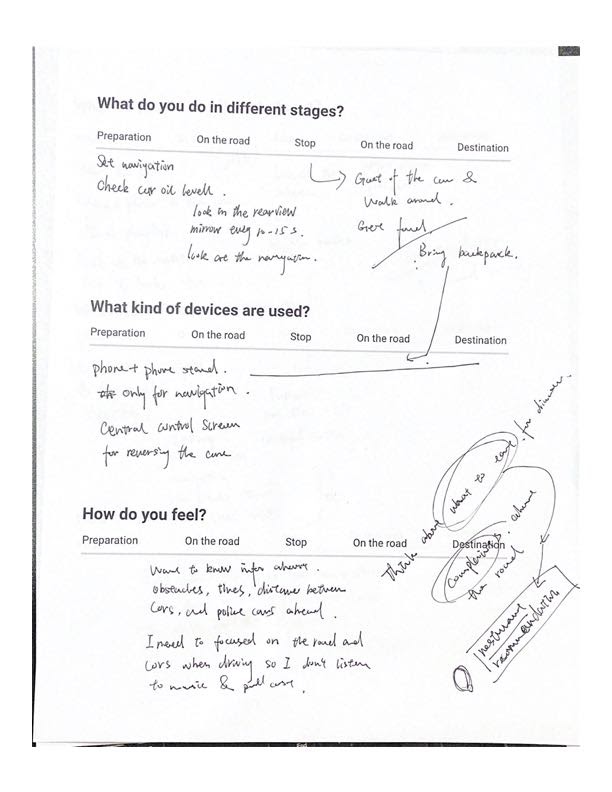 What do you do in different stages?
Preparation On the road Stop On the road Destination
Set navigation
Check car oil levell.
look in the rearview
mirrow evey 10-15 s.
look are the navigation.
Goet of the car &
Walk around.
Bring backpack.
What kind of devices are used?
Preparation On the road Stop On the road Destination
phone + phone stand.
only for navigation.
Central control Screen
for reversing the care
How do you feel?
Preparation On the road Stop On the road Destination
Want to know infor above
obstacles, times, distance between
Cars, and police cars ahead.
I need to focused on the road and
cars when driving so I don't listen
to music & podcast.
Think above what to eat for dinner.
Complaints above
the road
restaurant
recommendation
End